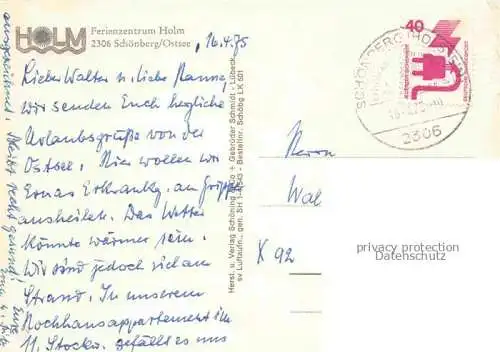 HOLM
Ferienzentrum Holm
2306 Schönberg/Ostsee
16.4.75
Lieber Walter u. liebe Hanna,
wir senden Euch herzliche
Urlaubsgrüße von der
Ostsee. Hier wollen wir
Ernas Erkrankg. an Grippe
ausheilen. Das Wetter
könnte wärmer sein.
Wir sind jedoch viel am
Strand. In unserem
Hochhausappartement im
11. Stockw. gefällt es uns
ausgezeichnet. Bleibt recht gesund!
Herst. u. Verlag Schöning & Co + Gebrüder Schmidt - Lübeck
sv Luftaufn., gen. SH 1-4543 - Bestellnr. Schöbg LK 601
Herrn
Wal
X 92
40
SCHÖNBERG (HOLSTEIN)
2306
privacy protection
Datenschutz